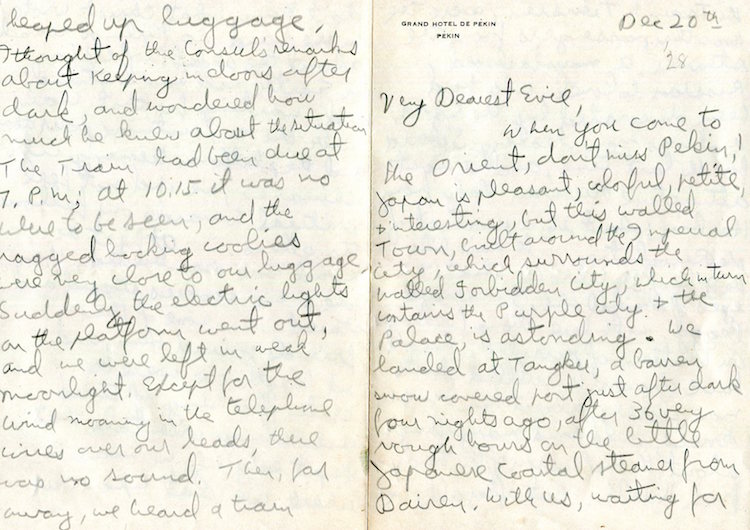 heaped up luggage,
I thought of the Consul's remarks
about keeping indoors after
dark, and wondered how
much he knew about the situation
The Train had been due at
7. P.M; at 10.15 it was no
where to be seen, and the
ragged looking coolies
were very close to our luggage,
Suddenly the electric lights
on the platform went out,
and we were left in weak
moonlight. Except for the
wind moaning in the telephone
wires over our heads, there
was no sound. Then, far
away, we heard a train
GRAND HOTEL DE PÉKIN
PÉKIN
Dec 20th
28
Very Dearest Evie,
When you come to
the Orient, don't miss Pekin!
Japan is pleasant, colorful, petite,
+ interesting, but this walled
Town, built around the Imperial
City, which surrounds the
walled Forbidden City, which in turn
contains the Purple City + the
Palace, is astonding. We
landed at Tangku, a barren
snow covered port just after dark
four nights ago, after 36 very
rough hours on the little
Japanese Coastal steamer from
Dairen. With us, waiting for